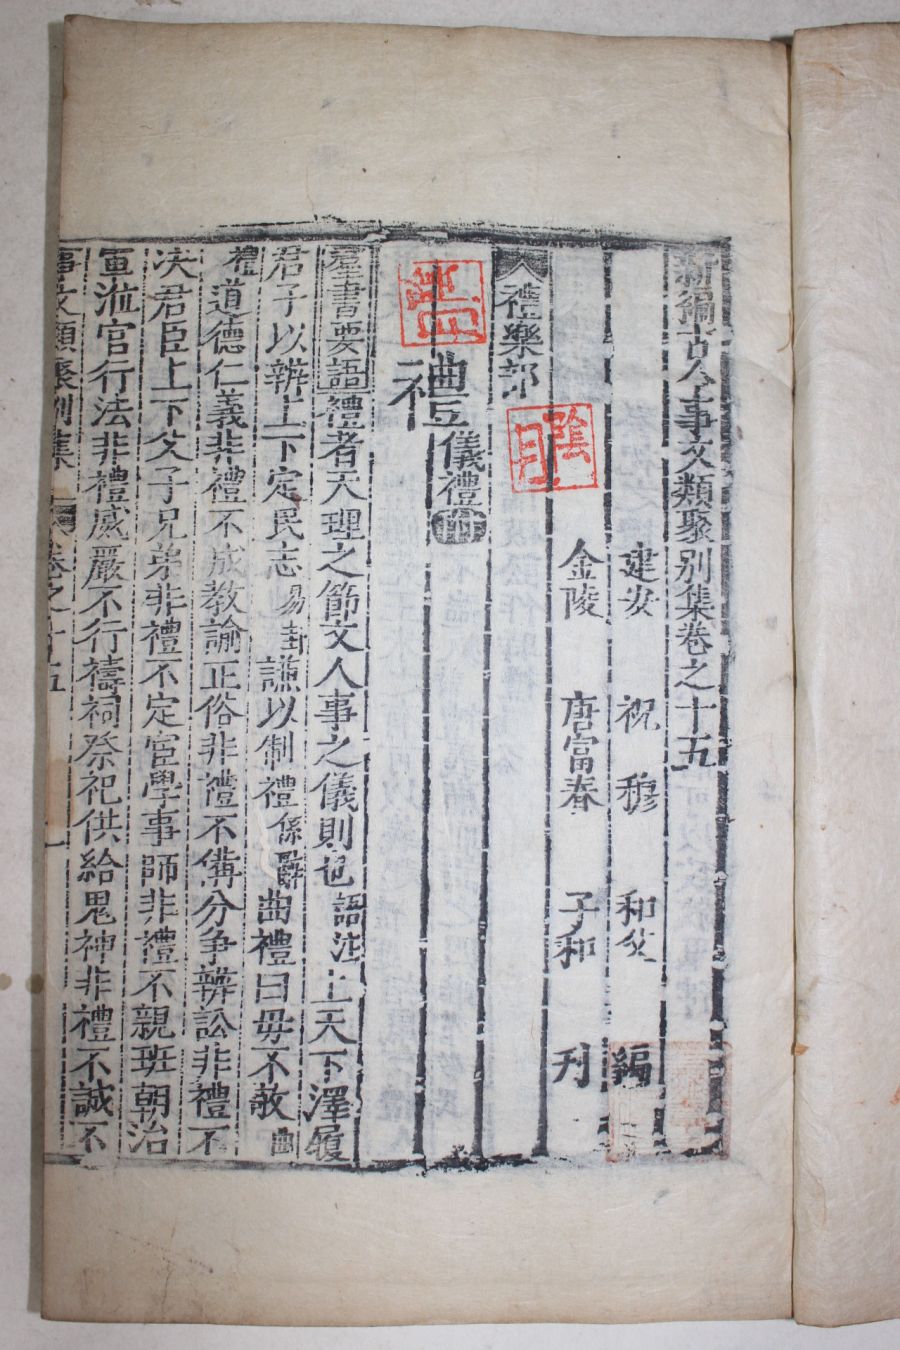 新編古今事文類聚別集卷之十五
建安 祝 穆 和父 編
金陵 唐富春 子和 刊
禮樂部
禮 儀禮附
羣書要語禮者天理之節文人事之儀則也語注上天下澤履
君子以辨上下定民志易卦謙以制禮係辭曲禮曰毋不敬曲
禮道德仁義非禮不成教諭正俗非禮不備分争辨訟非禮不
决君臣上下父子兄弟非禮不定宦學事師非禮不親班朝治
軍涖官行法非禮威嚴不行禱祠祭祀供給鬼神非禮不誠不
事文類聚別集 卷之十五 一